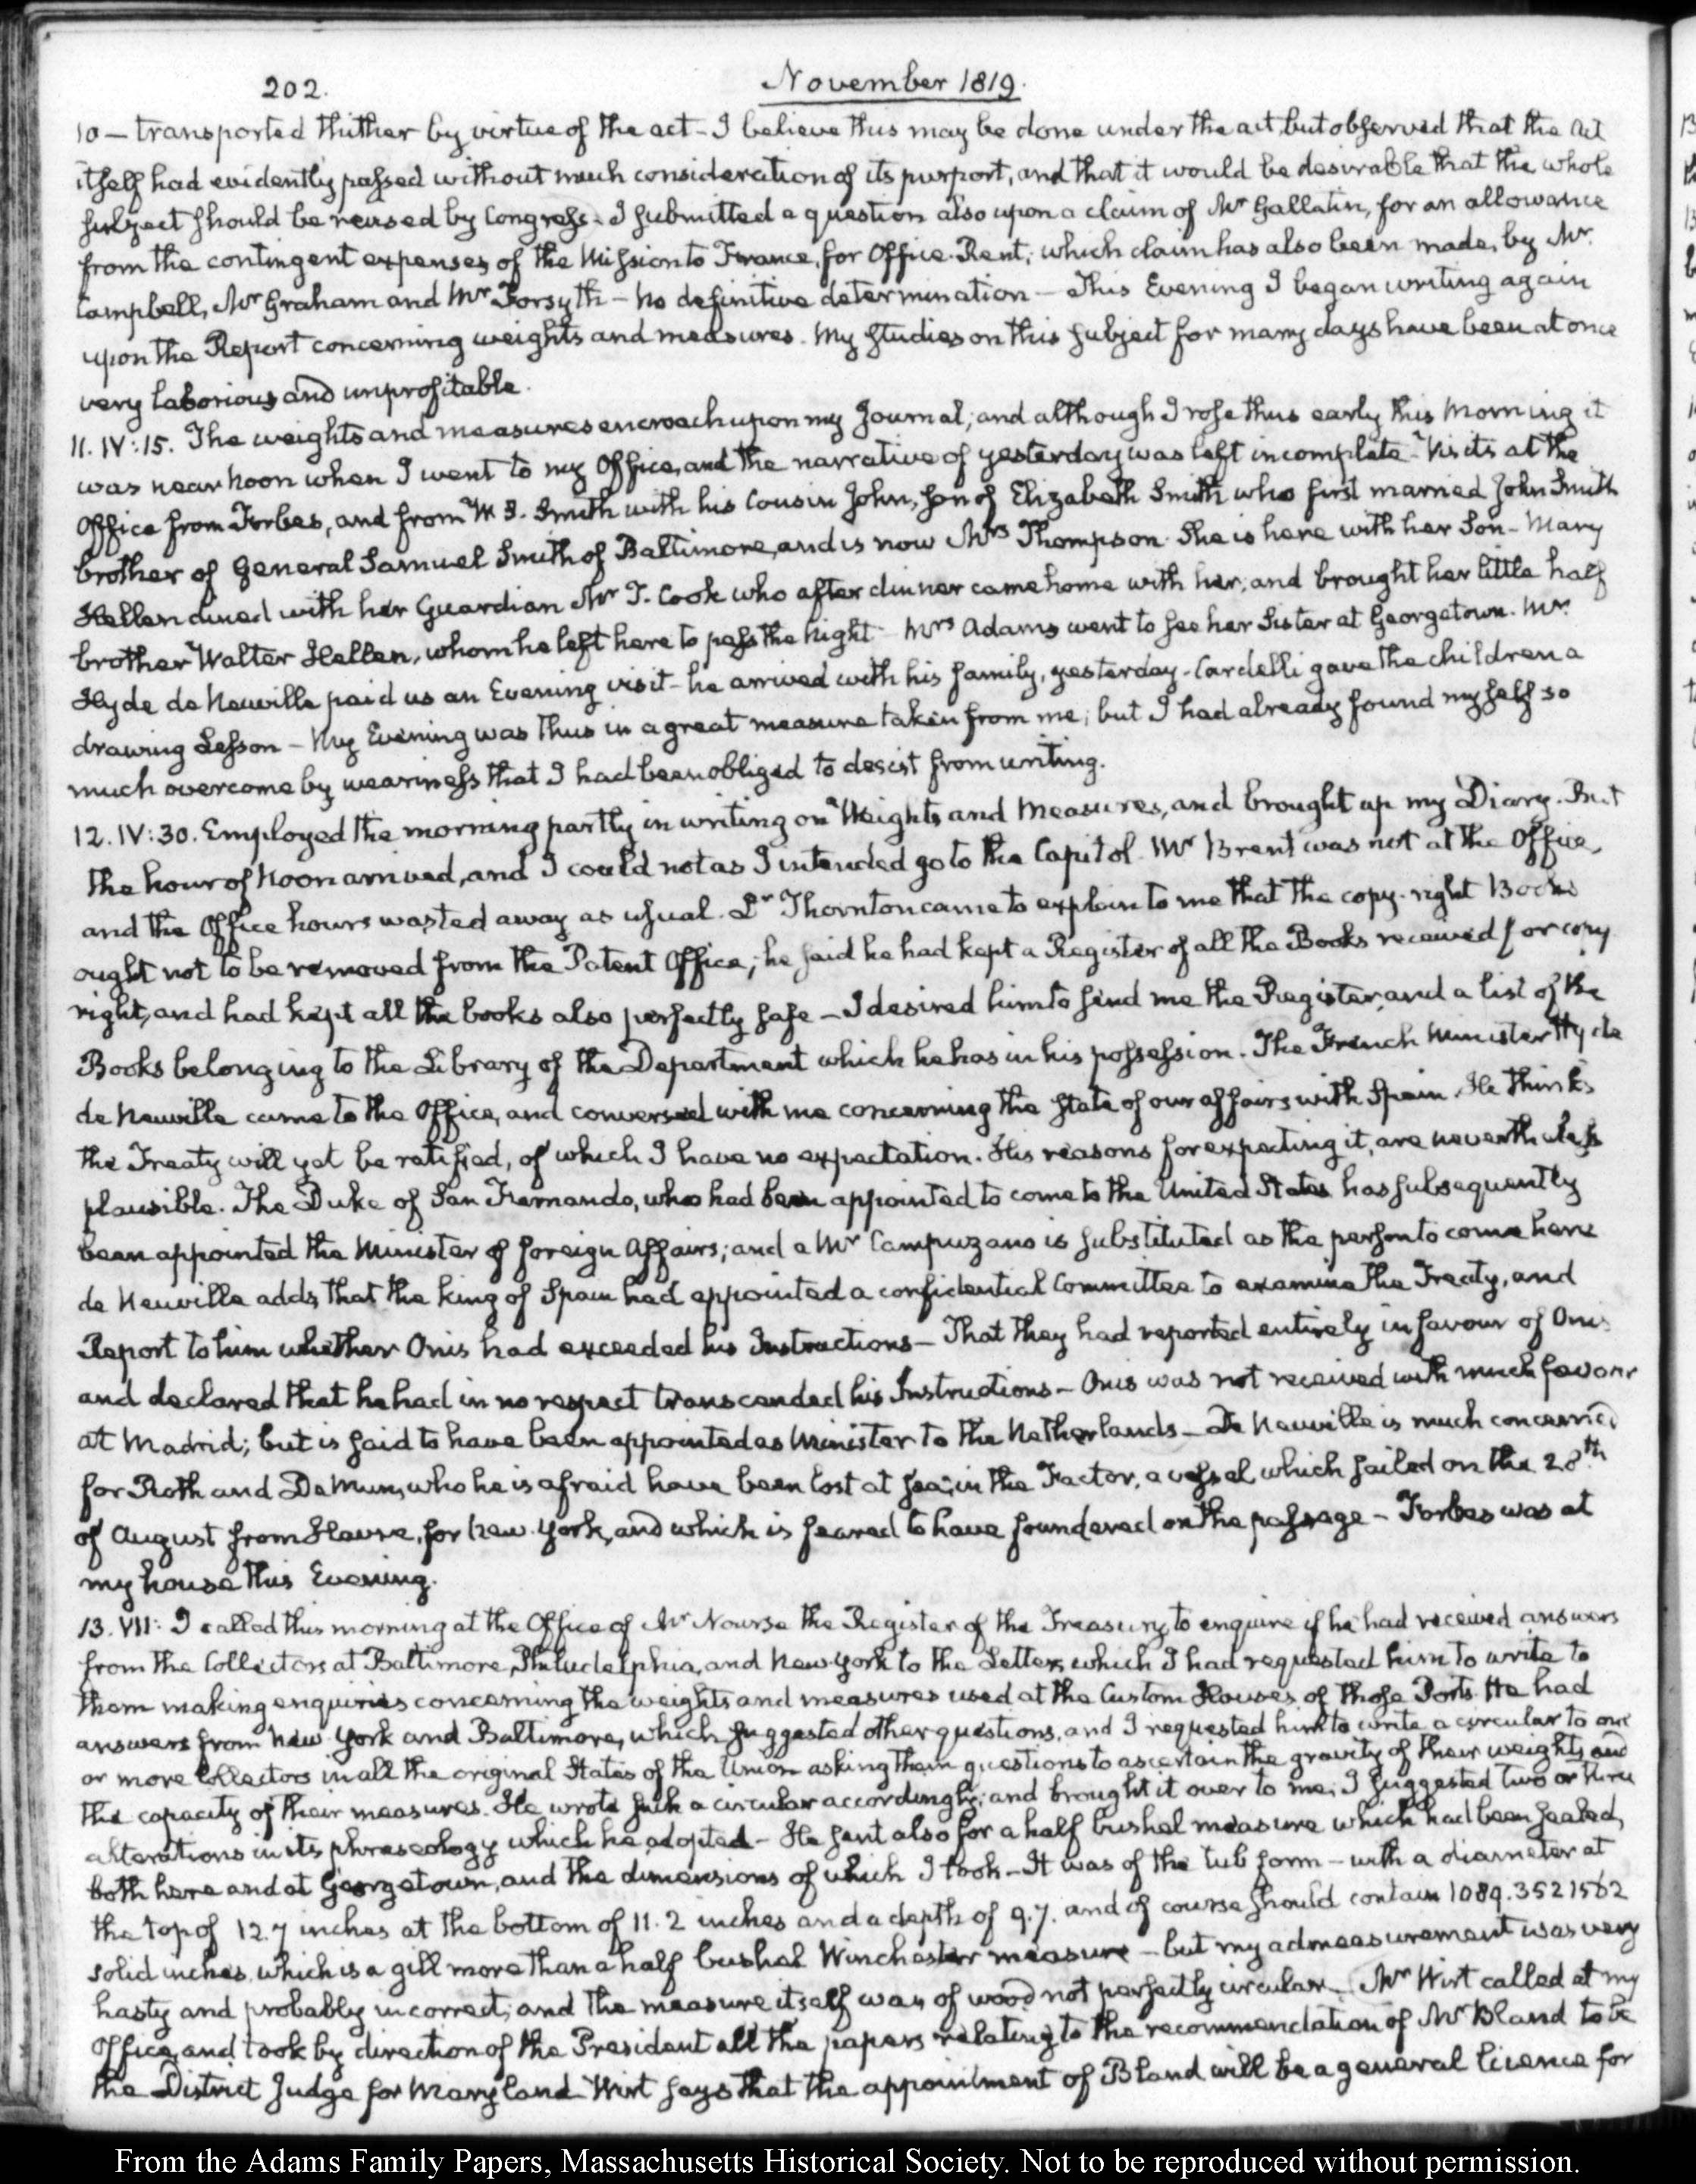 202.
November 1819.
10 — transported thither by virtue of the act - I believe this may be done under the act, but observed that the Act
itself had evidently passed without much consideration of its purport, and that it would be desirable that the whole
subject should be revised by Congress - I submitted a question also upon a claim of Mr Gallatin, for an allowance
from the contingent expenses of the Mission to France, for Office-Rent; which claim has also been made, by Mr.
Campbell, Mr Graham and Mr Forsyth - No definitive determination - This Evening I began writing again
upon the Report concerning weights and measures. My studies on this subject for many days have been at once
very laborious and unprofitable.
11. IV:15. The weights and measures encroach upon my Journal; and although I rose thus early this Morning it
was near Noon when I went to my Office, and the narrative of yesterday was left incomplete - Visits at the
Office from Forbes, and from W. S. Smith with his Cousin John, son of Elizabeth Smith who first married John Smith
brother of General Samuel Smith of Baltimore, and is now Mrs Thompson. She is here with her Son - Mary
Hellen dined with her Guardian Mr T. Cook who after dinner came home with her; and brought her little half
brother Walter Hellen, whom he left here to pass the Night - Mrs Adams went to see her Sister at Georgetown. Mr.
Hyde de Neuville paid us an Evening visit - he arrived with his family, yesterday - Cardelli gave the children a
drawing Lesson - My Evening was thus in a great measure taken from me; but I had already found myself so
much overcome by weariness that I had been obliged to desist from writing.
12. IV:30. Employed the morning partly in writing on Weights and Measures, and brought up my Diary. But
the hour of Noon arrived, and I could not as I intended go to the Capitol. Mr Brent was not at the Office,
and the Office hours wasted away as usual. Dr Thornton came to explain to me that the copy-right Books
ought not to be removed from the Patent Office; he said he had kept a Register of all the Books received for copy
right, and had kept all the books also perfectly safe - I desired him to send me the Register, and a list of the
Books belonging to the Library of the Department which he has in his possession. The French Minister Hyde
de Neuville came to the Office, and conversed with me concerning the state of our affairs with Spain. He thinks
the Treaty will yet be ratified, of which I have no expectation. His reasons for expecting it, are nevertheless
plausible. The Duke of San Fernando, who had been appointed to come to the United States has subsequently
been appointed the Minister of foreign Affairs; and a Mr Campuzano is substituted as the person to come here
de Neuville adds, that the king of Spain had appointed a confidential Committee to examine the Treaty, and
Report to him whether Onis had exceeded his Instructions - That they had reported entirely in favour of Onis
and declared that he had in no respect transcended his Instructions - Onis was not received with much favour
at Madrid; but is said to have been appointed as Minister to the Netherlands - De Neuville is much concerned
for Roth and De Mun, who he is afraid have been lost at sea; in the Factor, a vessel, which sailed on the 28th
of August from Havre, for New-York, and which is feared to have foundered on the passage - Forbes was at
my house this Evening.
13. VII: I called this morning at the Office of Mr Nourse the Register of the Treasury, to enquire if he had received answers
from the Collectors at Baltimore, Philadelphia, and New-York to the Letters, which I had requested him to write to
them making enquiries concerning the weights and measures used at the Custom Houses of those Ports. He had
answers from New York and Baltimore, which suggested other questions, and I requested him to write a circular to one
or more Collectors in all the original States of the Union asking them questions to ascertain the gravity of their weights, and
the capacity of their measures. He wrote such a circular accordingly; and brought it over to me; I suggested two or three
alterations in its phraseology which he adopted - He sent also for a half bushel measure which had been sealed,
both here and at Georgetown, and the dimensions of which I took - It was of the tub form - with a diameter at
the top of 12.7 inches at the bottom of 11.2 inches and a depth of 9.7. and of course should contain 1089.3521562
solid inches, which is a gill more than a half bushel Winchester measure - but my admeasurement was very
hasty and probably incorrect, and the measure itself was of wood not perfectly circular. Mr Wirt called at my
Office, and took by direction of the President all the papers relating to the recommendation of Mr Bland to be
the District Judge for Maryland - Wirt says that the appointment of Bland will be a general licence for
From the Adams Family Papers, Massachusetts Historical Society. Not to be reproduced without permission.